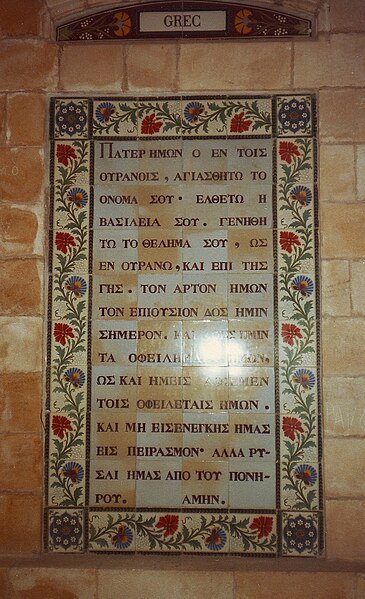 GREC
ΠΑΤΕΡ ΗΜΩΝ Ο ΕΝ ΤΟΙΣ
ΟΥΡΑΝΟΙΣ, ΑΓΙΑΣΘΗΤΩ ΤΟ
ΟΝΟΜΑ ΣΟΥ· ΕΛΘΕΤΩ Η
ΒΑΣΙΛΕΙΑ ΣΟΥ. ΓΕΝΗΘΗ
ΤΩ ΤΟ ΘΕΛΗΜΑ ΣΟΥ, ΩΣ
ΕΝ ΟΥΡΑΝΩ, ΚΑΙ ΕΠΙ ΤΗΣ
ΓΗΣ. ΤΟΝ ΑΡΤΟΝ ΗΜΩΝ
ΤΟΝ ΕΠΙΟΥΣΙΟΝ ΔΟΣ ΗΜΙΝ
ΣΗΜΕΡΟΝ. ΗΜΙΝ
ΤΑ
ΩΣ ΚΑΙ ΗΜΕΙΣ
ΤΟΙΣ ΟΦΕΙΛΕΤΑΙΣ ΗΜΩΝ.
ΚΑΙ ΜΗ ΕΙΣΕΝΕΓΚΗΣ ΗΜΑΣ
ΕΙΣ ΠΕΙΡΑΣΜΟΝ· ΑΛΛΑ ΡΥ-
ΣΑΙ ΗΜΑΣ ΑΠΟ ΤΟΥ ΠΟΝΗ-
ΡΟΥ. ΑΜΗΝ.